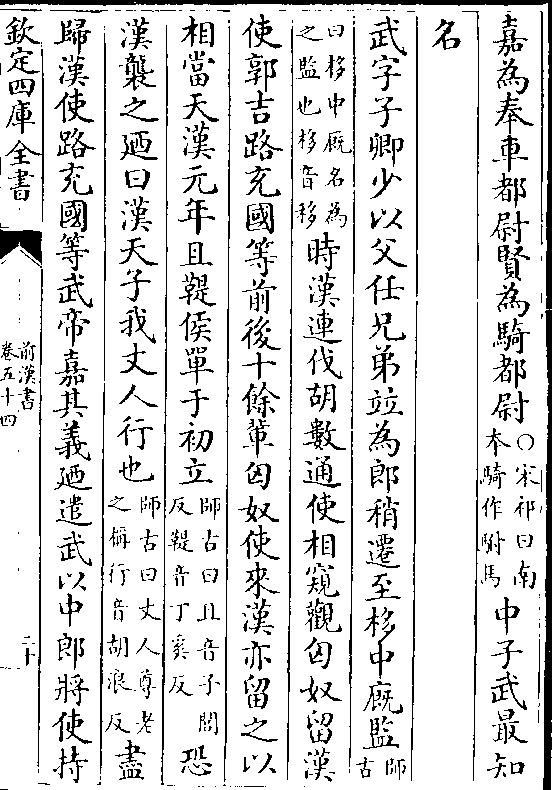 嘉為奉車都尉賢為騎都尉○宋祁曰南本騎作駙馬中子武最知
名
武字子卿少以父任兄弟竝為郎稍遷至栘中廐監師古
曰栘中廐名為之監也栘音移時漢連伐胡數通使相窺觀匈奴留漢
使郭吉路充國等前後十餘輩匈奴使來漢亦留之以
相當天漢元年且鞮侯單于初立師古曰且音子閭反鞮音丁奚反恐
漢襲之廼曰漢天子我丈人行也師古曰丈人尊老之稱行音胡浪反盡
歸漢使路充國等武帝嘉其義廼遣武以中郎將使持
欽定四庫全書
前漢書
卷五十四
二十